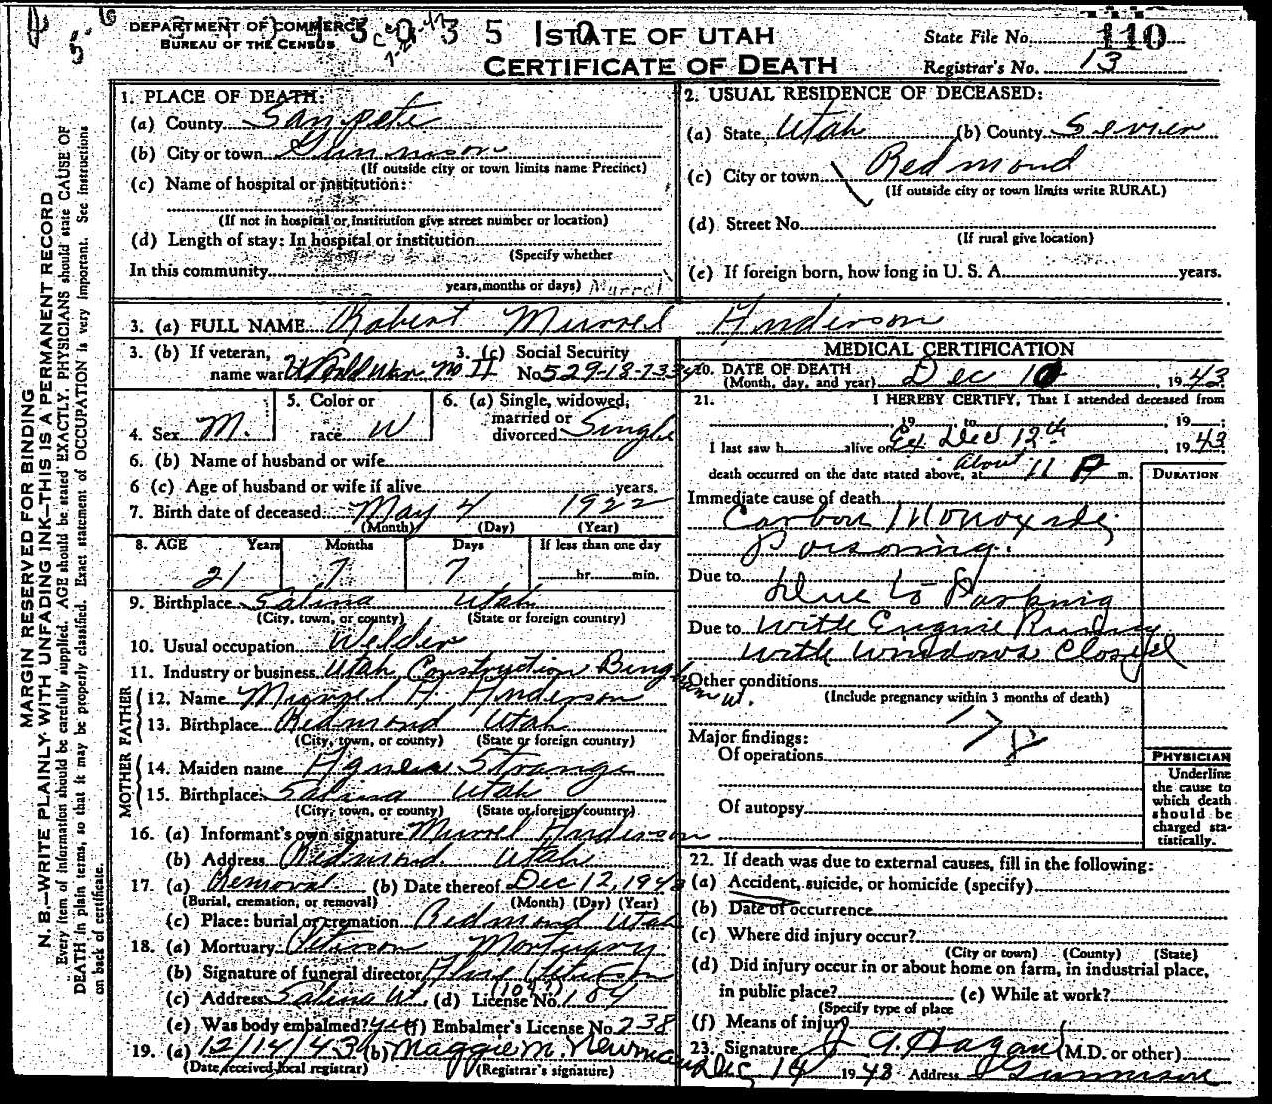 DEPARTMENT OF COMMERCE
BUREAU OF THE CENSUS
STATE OF UTAH
CERTIFICATE OF DEATH
State File No. 110
Registrar's No. 13
MARGIN RESERVED FOR BINDING
N. B.—WRITE PLAINLY WITH UNFADING INK—THIS IS A PERMANENT RECORD
Every item of information should be carefully supplied. AGE should be stated EXACTLY. PHYSICIANS should state CAUSE OF
DEATH in plain terms, so that it may be properly classified. Exact statement of OCCUPATION is very important. See instructions
on back of certificate.
1. PLACE OF DEATH:
(a) County Sanpete
(b) City or town Gunnison
(If outside city or town limits name Precinct)
(c) Name of hospital or institution:
(If not in hospital or institution give street number or location)
(d) Length of stay: In hospital or institution
(Specify whether
In this community
years, months or days) Murrel
2. USUAL RESIDENCE OF DECEASED:
(a) State Utah (b) County Sevier
(c) City or town Redmond
(If outside city or town limits write RURAL)
(d) Street No.
(If rural give location)
(e) If foreign born, how long in U. S. A. years.
3. (a) FULL NAME Robert Murrel Anderson
3. (b) If veteran, name war World War No II
3. (c) Social Security No. 529-18-7334
4. Sex M.
5. Color or race W
6. (a) Single, widowed, married or divorced Single
6. (b) Name of husband or wife
6 (c) Age of husband or wife if alive years.
7. Birth date of deceased May 4 1922
(Month) (Day) (Year)
8. AGE Years Months Days If less than one day
21 7 7 hr. min.
9. Birthplace Salina Utah
(City, town, or county) (State or foreign country)
10. Usual occupation Welder
11. Industry or business Utah Construction Bingham Ut.
FATHER
12. Name Murrel H. Anderson
13. Birthplace Redmond Utah
(City, town, or county) (State or foreign country)
MOTHER
14. Maiden name Agness Strange
15. Birthplace Salina Utah
(City, town, or county) (State or foreign country)
16. (a) Informant's own signature Murrel Anderson
(b) Address Redmond Utah
17. (a) Removal (b) Date thereof Dec 12, 1943
(Burial, cremation, or removal) (Month) (Day) (Year)
(c) Place: burial or cremation Redmond Utah
18. (a) Mortuary Peterson Mortuary
(b) Signature of funeral director
(c) Address Salina Ut. (d) License No. 184
(e) Was body embalmed? yes (f) Embalmer's License No. 238
19. (a) 12/14/43 (b) Maggie M. Newman
(Date received local registrar) (Registrar's signature)
MEDICAL CERTIFICATION
20. DATE OF DEATH Dec 10, 1943
(Month, day, and year)
21. I HEREBY CERTIFY, That I attended deceased from
19 to , 19
I last saw h alive on Dec 12th, 1943
death occurred on the date stated above, at About 11 P m.
DURATION
Immediate cause of death
Carbon Monoxide
Poisoning.
Due to Due to Parking
Due to With Engine Running
with windows Closed
Other conditions
(Include pregnancy within 3 months of death)
178
Major findings:
Of operations
Of autopsy
PHYSICIAN
Underline
the cause to
which death
should be
charged sta-
tistically.
22. If death was due to external causes, fill in the following:
(a) Accident, suicide, or homicide (specify)
(b) Date of occurrence
(c) Where did injury occur?
(City or town) (County) (State)
(d) Did injury occur in or about home on farm, in industrial place,
in public place? (e) While at work?
(Specify type of place
(f) Means of injury
23. Signature J. A. Hagan (M.D. or other)
Dec 14 1943 Address Gunnison